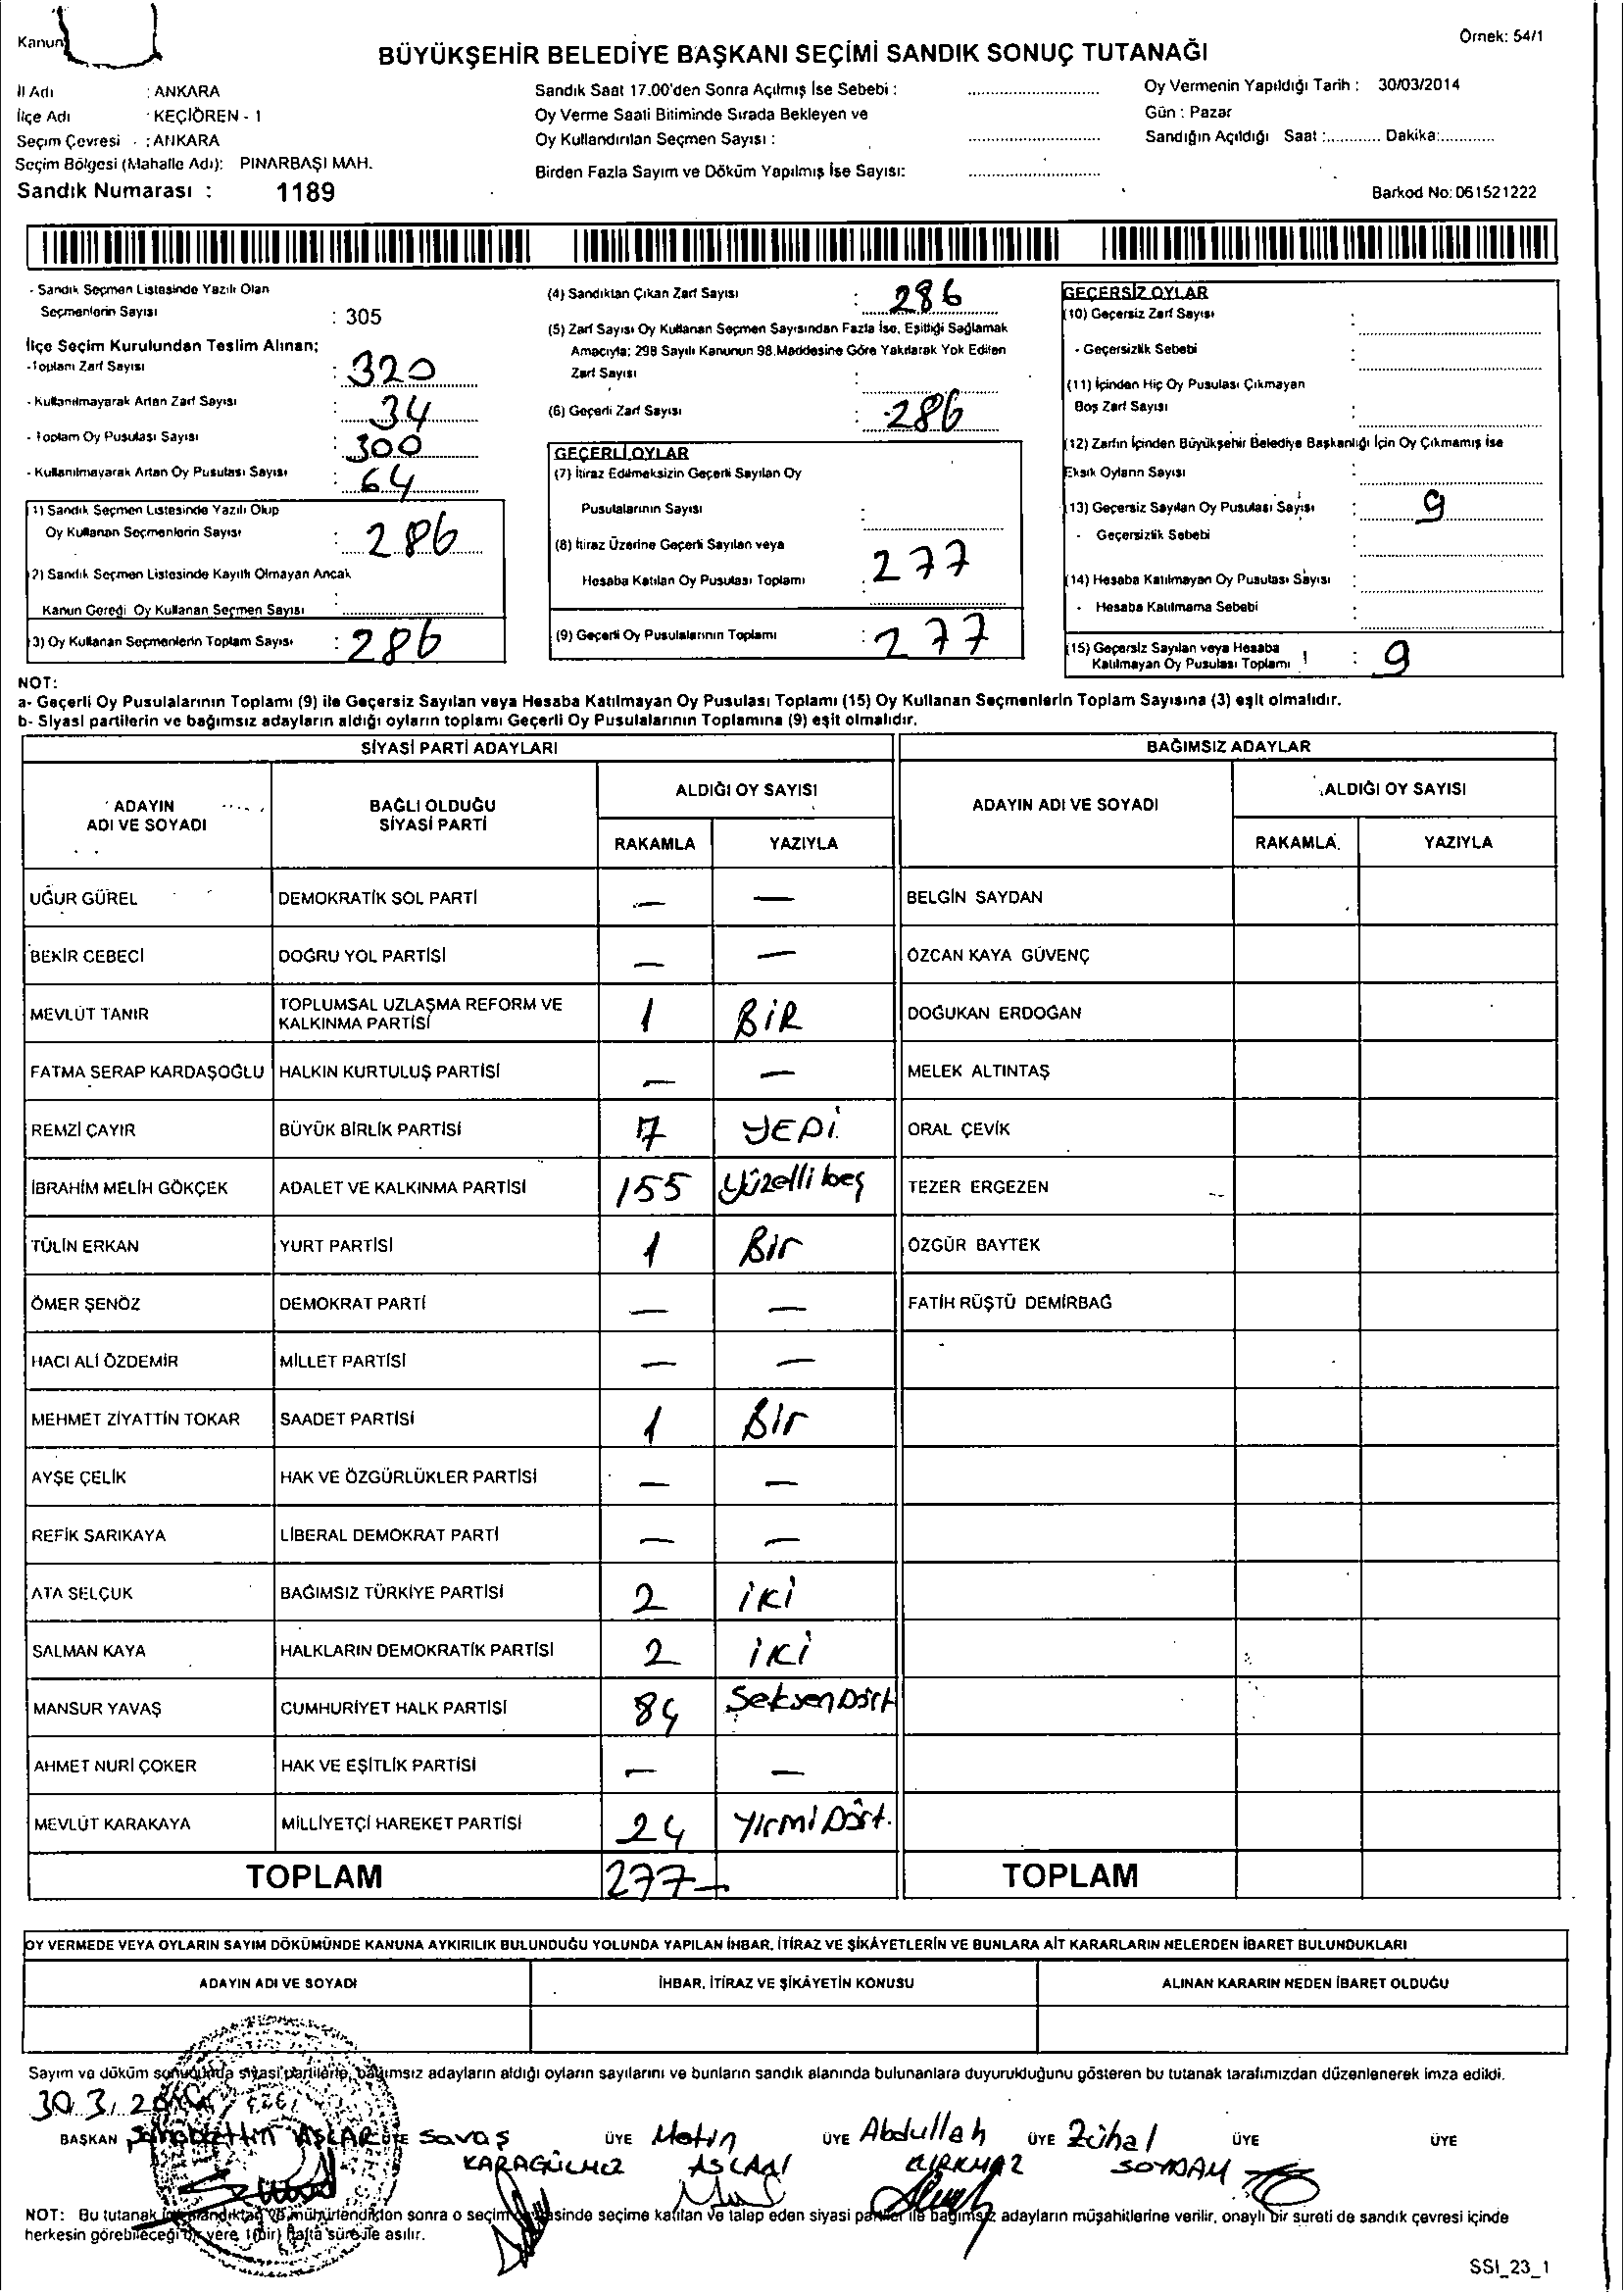 Kanun
Örnek: 54/1
BÜYÜKŞEHİR BELEDİYE BAŞKANI SEÇİMİ SANDIK SONUÇ TUTANAĞI
İl Adı : ANKARA
İlçe Adı KEÇİÖREN - 1
Seçim Çevresi : ANKARA
Seçim Bölgesi (Mahalle Adı): PINARBAŞI MAH.
Sandık Numarası : 1189
Sandık Saat 17.00'den Sonra Açılmış İse Sebebi :
Oy Verme Saati Bitiminde Sırada Bekleyen ve
Oy Kullandırılan Seçmen Sayısı :
Birden Fazla Sayım ve Döküm Yapılmış İse Sayısı:
Oy Vermenin Yapıldığı Tarih : 30/03/2014
Gün : Pazar
Sandığın Açıldığı Saat :............ Dakika:............
Barkod No: 061521222
- Sandık Seçmen Listesinde Yazılı Olan
Seçmenlerin Sayısı : 305
İlçe Seçim Kurulundan Teslim Alınan;
-Toplam Zarf Sayısı : 320
- Kullanılmayarak Artan Zarf Sayısı : 34
- Toplam Oy Pusulası Sayısı : 300
- Kullanılmayarak Artan Oy Pusulası Sayısı : 64
1) Sandık Seçmen Listesinde Yazılı Olup
Oy Kullanan Seçmenlerin Sayısı : 286
2) Sandık Seçmen Listesinde Kayıtlı Olmayan Ancak
Kanun Gereği Oy Kullanan Seçmen Sayısı :
3) Oy Kullanan Seçmenlerin Toplam Sayısı : 286
(4) Sandıktan Çıkan Zarf Sayısı : 286
(5) Zarf Sayısı Oy Kullanan Seçmen Sayısından Fazla İse, Eşitliği Sağlamak
Amacıyla; 298 Sayılı Kanunun 98.Maddesine Göre Yakılarak Yok Edilen
Zarf Sayısı :
(6) Geçerli Zarf Sayısı : 286
GEÇERLİ OYLAR
(7) İtiraz Edilmeksizin Geçerli Sayılan Oy
Pusulalarının Sayısı :
(8) İtiraz Üzerine Geçerli Sayılan veya
Hesaba Katılan Oy Pusulası Toplamı : 277
(9) Geçerli Oy Pusulalarının Toplamı : 277
GEÇERSİZ OYLAR
(10) Geçersiz Zarf Sayısı :
- Geçersizlik Sebebi :
(11) İçinden Hiç Oy Pusulası Çıkmayan
Boş Zarf Sayısı :
(12) Zarfın İçinden Büyükşehir Belediye Başkanlığı İçin Oy Çıkmamış ise
Eksik Oyların Sayısı :
(13) Geçersiz Sayılan Oy Pusulası Sayısı : 9
- Geçersizlik Sebebi :
(14) Hesaba Katılmayan Oy Pusulası Sayısı :
- Hesaba Katılmama Sebebi :
(15) Geçersiz Sayılan veya Hesaba
Katılmayan Oy Pusulası Toplamı : 9
NOT:
a- Geçerli Oy Pusulalarının Toplamı (9) ile Geçersiz Sayılan veya Hesaba Katılmayan Oy Pusulası Toplamı (15) Oy Kullanan Seçmenlerin Toplam Sayısına (3) eşit olmalıdır.
b- Siyasi partilerin ve bağımsız adayların aldığı oyların toplamı Geçerli Oy Pusulalarının Toplamına (9) eşit olmalıdır.
SİYASİ PARTİ ADAYLARI BAĞIMSIZ ADAYLAR
ADAYIN ADI VE SOYADI BAĞLI OLDUĞU SİYASİ PARTİ ALDIĞI OY SAYISI ADAYIN ADI VE SOYADI ALDIĞI OY SAYISI
RAKAMLA YAZIYLA RAKAMLA YAZIYLA
UĞUR GÜREL DEMOKRATİK SOL PARTİ — — BELGİN SAYDAN
BEKİR CEBECİ DOĞRU YOL PARTİSİ — — ÖZCAN KAYA GÜVENÇ
MEVLÜT TANIR TOPLUMSAL UZLAŞMA REFORM VE KALKINMA PARTİSİ 1 BİR DOĞUKAN ERDOĞAN
FATMA SERAP KARDAŞOĞLU HALKIN KURTULUŞ PARTİSİ — — MELEK ALTINTAŞ
REMZİ ÇAYIR BÜYÜK BİRLİK PARTİSİ 7 YEDİ ORAL ÇEVİK
İBRAHİM MELİH GÖKÇEK ADALET VE KALKINMA PARTİSİ 155 yüzelli beş TEZER ERGEZEN
TÜLİN ERKAN YURT PARTİSİ 1 Bir ÖZGÜR BAYTEK
ÖMER ŞENÖZ DEMOKRAT PARTİ — — FATİH RÜŞTÜ DEMİRBAĞ
HACI ALİ ÖZDEMİR MİLLET PARTİSİ — —
MEHMET ZİYATTİN TOKAR SAADET PARTİSİ 1 Bir
AYŞE ÇELİK HAK VE ÖZGÜRLÜKLER PARTİSİ — —
REFİK SARIKAYA LİBERAL DEMOKRAT PARTİ — —
ATA SELÇUK BAĞIMSIZ TÜRKİYE PARTİSİ 2 iki
SALMAN KAYA HALKLARIN DEMOKRATİK PARTİSİ 2 iki
MANSUR YAVAŞ CUMHURİYET HALK PARTİSİ 84 Seksen Dört
AHMET NURİ ÇOKER HAK VE EŞİTLİK PARTİSİ — —
MEVLÜT KARAKAYA MİLLİYETÇİ HAREKET PARTİSİ 24 Yirmi Dört.
TOPLAM 277 TOPLAM
OY VERMEDE VEYA OYLARIN SAYIM DÖKÜMÜNDE KANUNA AYKIRILIK BULUNDUĞU YOLUNDA YAPILAN İHBAR, İTİRAZ VE ŞİKÂYETLERİN VE BUNLARA AİT KARARLARIN NELERDEN İBARET BULUNDUKLARI
ADAYIN ADI VE SOYADI İHBAR, İTİRAZ VE ŞİKÂYETİN KONUSU ALINAN KARARIN NEDEN İBARET OLDUĞU
Sayım ve döküm sonucunda siyasi partilerle, bağımsız adayların aldığı oyların sayılarını ve bunların sandık alanında bulunanlara duyurulduğunu gösteren bu tutanak tarafımızdan düzenlenerek imza edildi.
30.3.
BAŞKAN ÜYE Savaş ÜYE Metin ÜYE Abdullah ÜYE Zühal ÜYE ÜYE
KARAGÜLMEZ ASLAN KORKMAZ SOYDAM
NOT: Bu tutanak imzalandıktan ve mühürlendikten sonra o seçim çevresinde seçime katılan ve talep eden siyasi partiler ile bağımsız adayların müşahitlerine verilir, onaylı bir sureti de sandık çevresi içinde
herkesin görebileceği bir yere 1 (bir) hafta süre ile asılır.
SSI_23_1